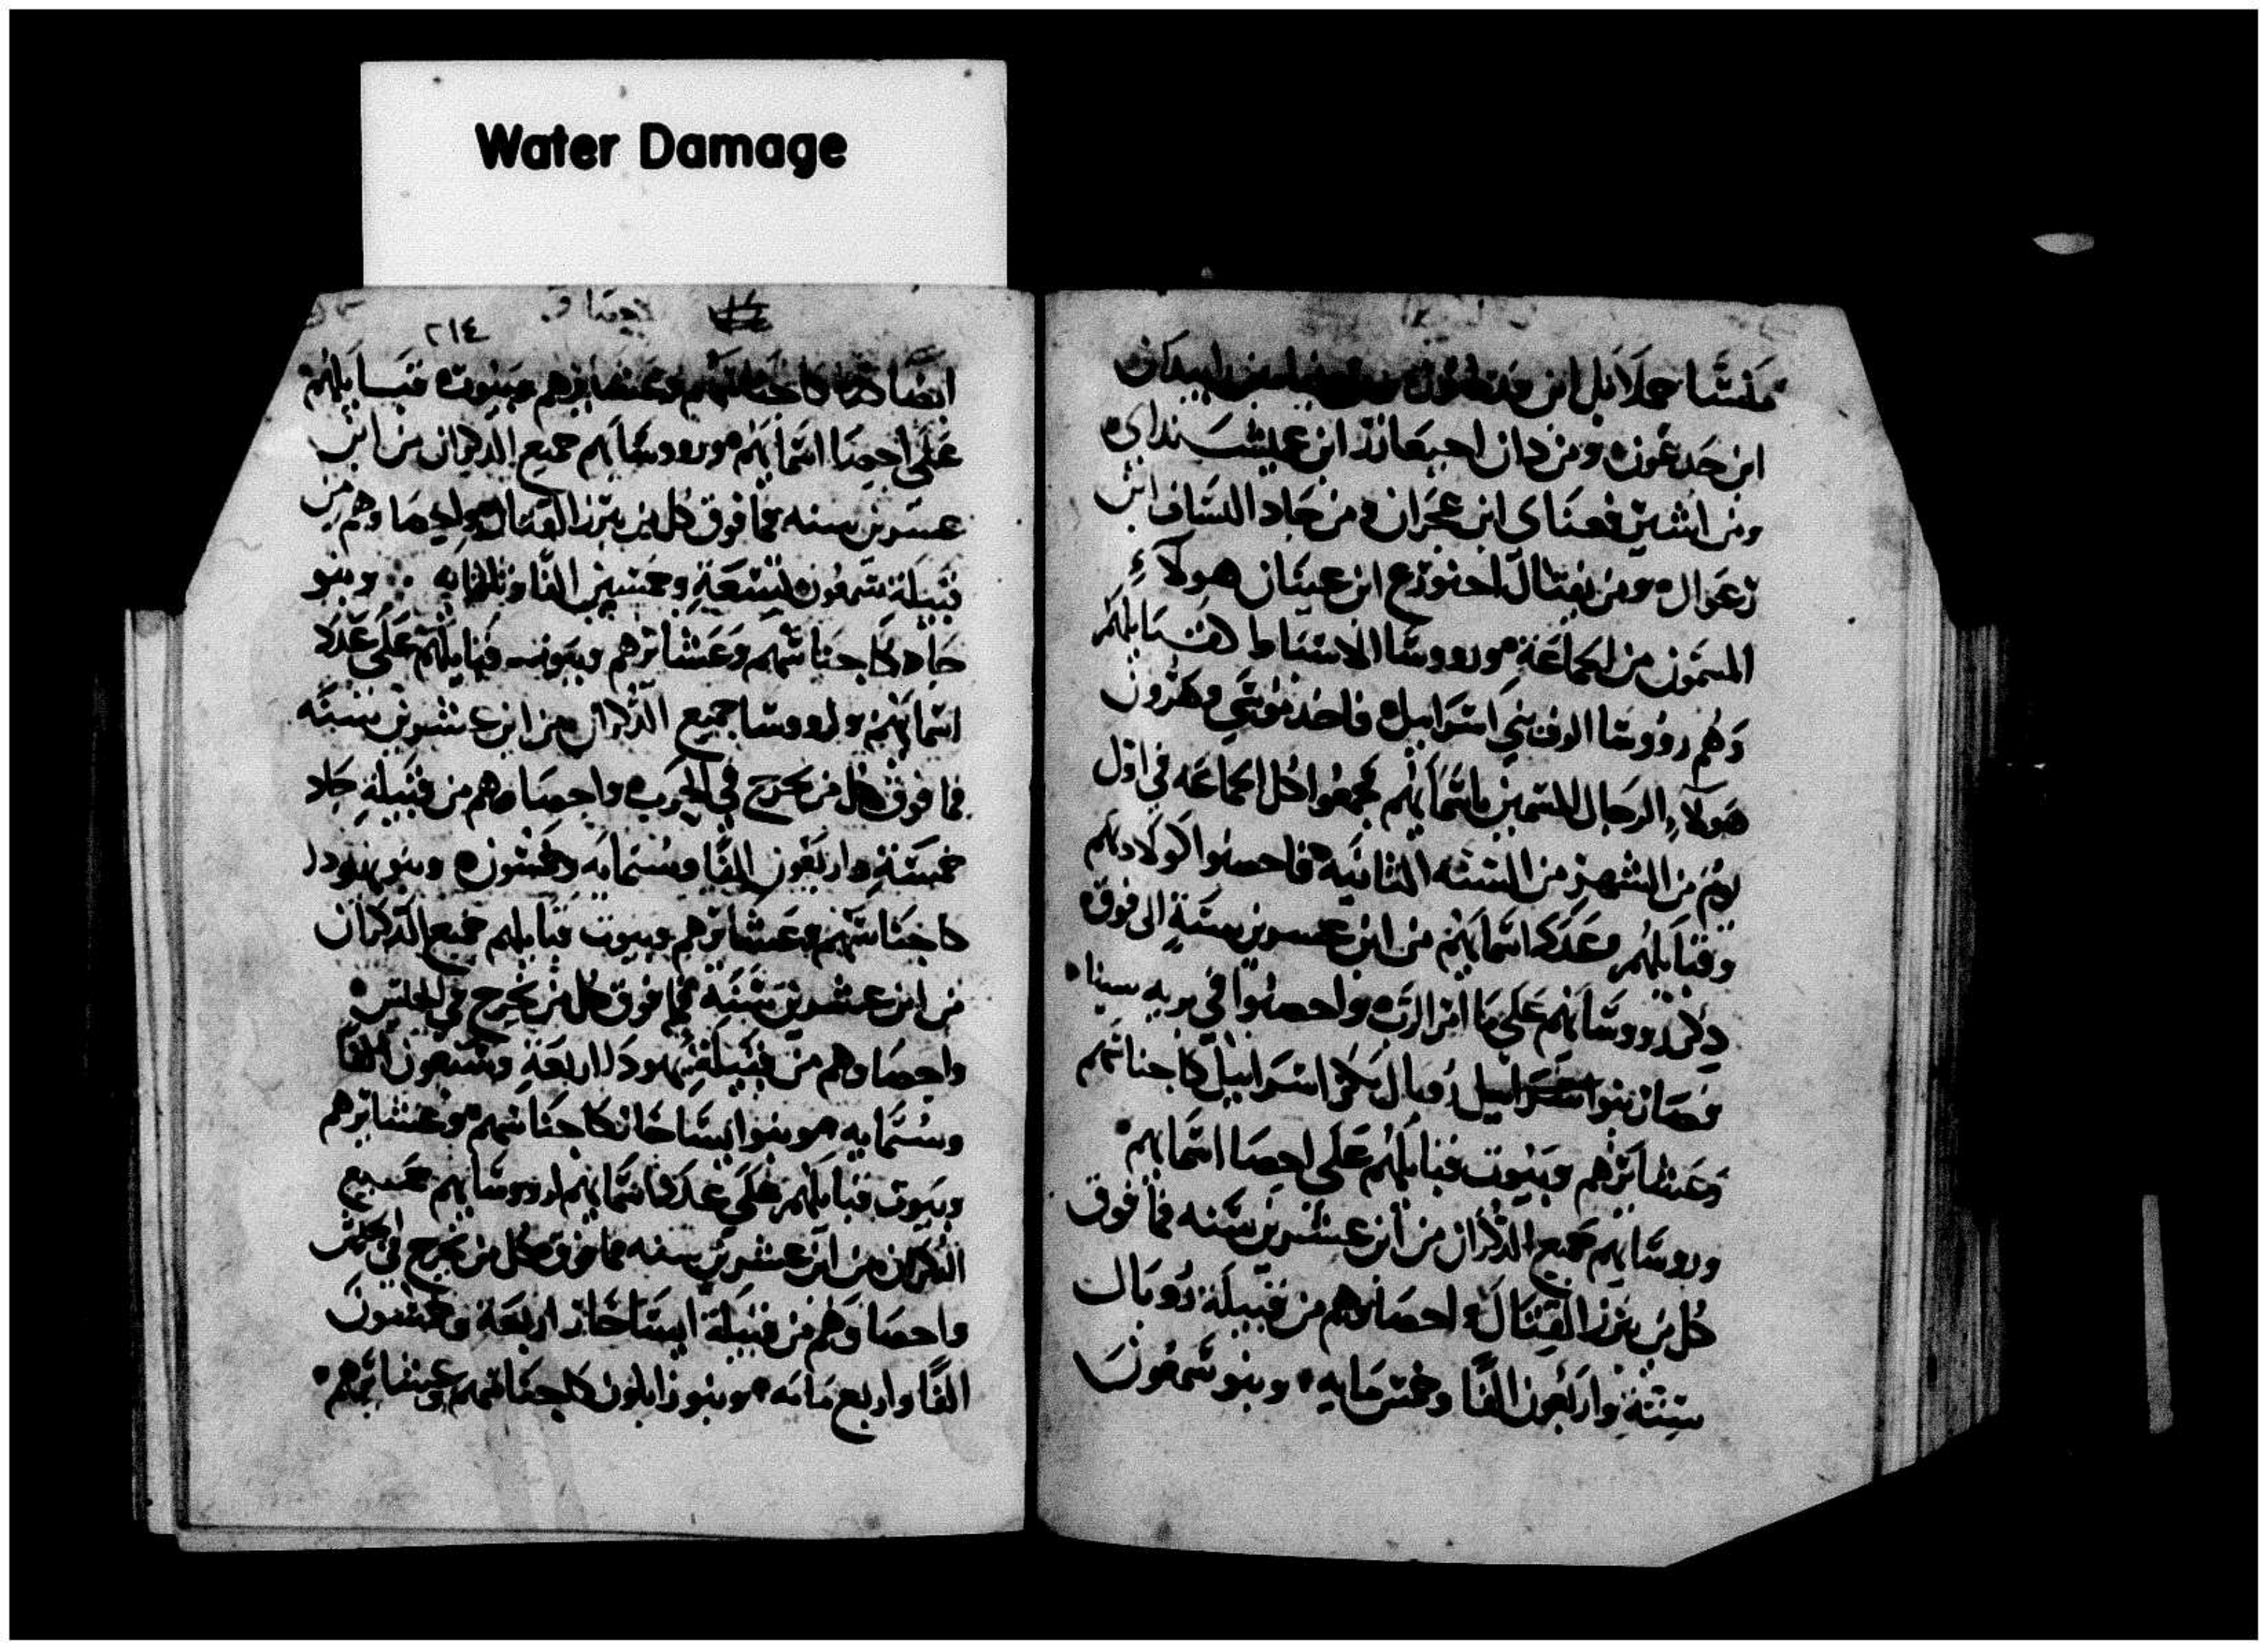 Water Damage
منشا جملانيل ابن
ابن جدعون ومن دان احيعازر ابن عميشنداي
ومن اشير فعناي ابن عجران ومن جاد الساف ابن
رعوال ومن نفتال احنورع ابن عينان هولاء
المسمون من الجماعة وروسا الاسباط
وهم رووسا الوف بني اسراييل فاخذ موسي وهرون
هولاء الرجال المسمين باسمايهم جمعوا كل الجماعه في اول
يوم من الشهر من السنه الثانيه فاحصوا اولادهم
وقبايلهم وعدد اسمايهم من ابن عسرين سنة الى فوق
ذكر رووسايهم على ما امر الرب واحصوا في بريه سينا
فصار بنو روبال بكر اسراييل كاجناسهم
وعشايرهم وبيوت قبايلهم على احصا اسمايهم
وروسايهم جميع الذكران من ابن عشرين سنه فما فوق
كل من يبرز القتال واحصاوهم من قبيلة روبال
ستة واربعون الفا وخمس مايه وبنو شمعون
٢١٤
ايضا كاجناسهم وعشايرهم وبيوت قبايلهم
على احصا اسمايهم ورووسايهم جميع الذكران من ابن
عسرين سنه فما فوق كل من يبرز القتال واحصاوهم من
قبيلة شمعون تسعة وخمسين الفا وثلثمايه وبنو
جاد كاجناسهم وعشايرهم وبيوت قبايلهم على عدد
اسمايهم ورووسا جميع الذكران من ابن عشرين سنه
فما فوق كل من يخرج في الحرب واحصاوهم من قبيلة جاد
خمسة واربعون الفا وستمايه وخمسون وبنو يهودا
كاجناسهم وعشايرهم وبيوت قبايلهم جميع الذكران
من ابن عشرين سنه فما فوق كل من يخرج في الجلس
واحصاوهم من قبيلة يهودا اربعة وسبعون الفا
وستمايه وبنوا ايساخار كاجناسهم وعشايرهم
وبيوت قبايلهم على عدد اسمايهم ورووسايهم جميع
الذكران من ابن عشرين سنه فما فوق كل من يخرج في
واحصاوهم من قبيلة ايساخار اربعة وخمسون
الفا واربع مايه وبنو زابلون كاجناسهم وعشايرهم